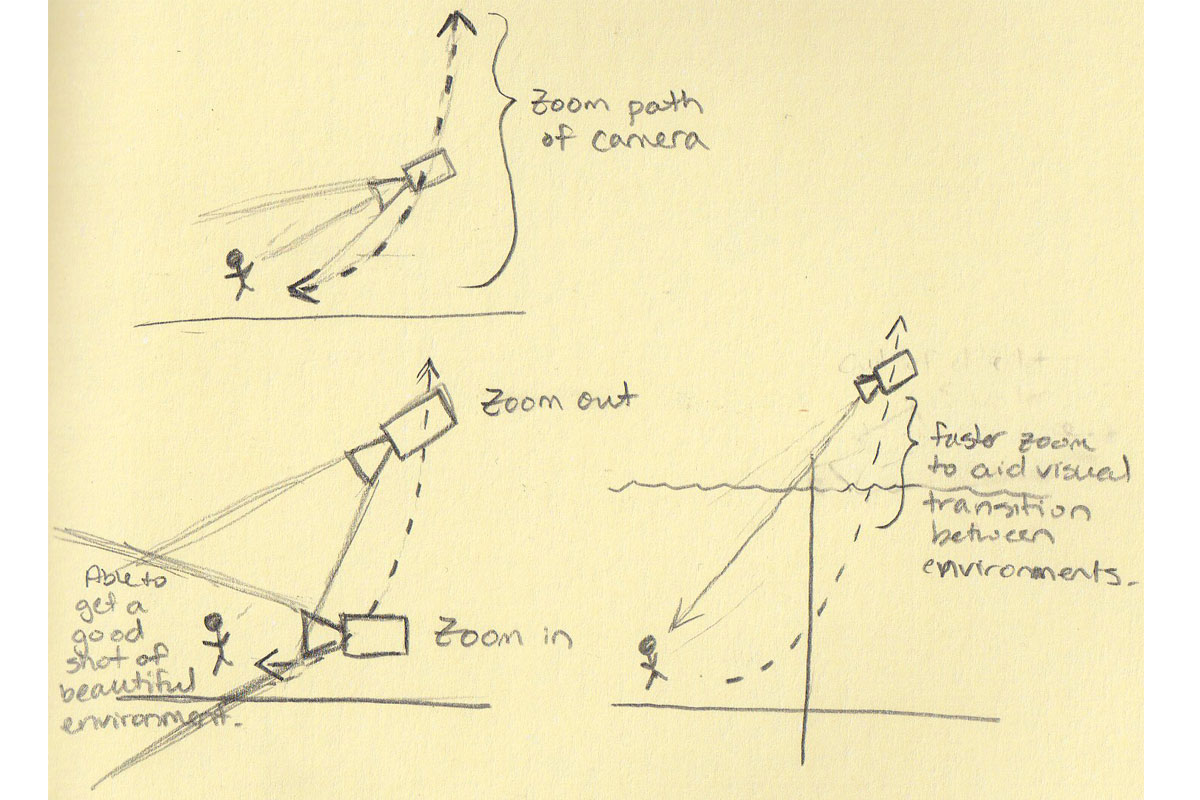 Zoom path
of camera
Zoom out
Able to
get a
good
shot of
beautiful
environment.
Zoom in
faster zoom
to aid visual
transition
between
environments.